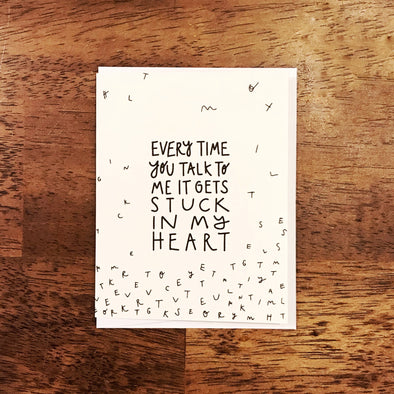 EVERY TIME
YOU TALK TO
ME IT GETS
STUCK
IN MY
HEART